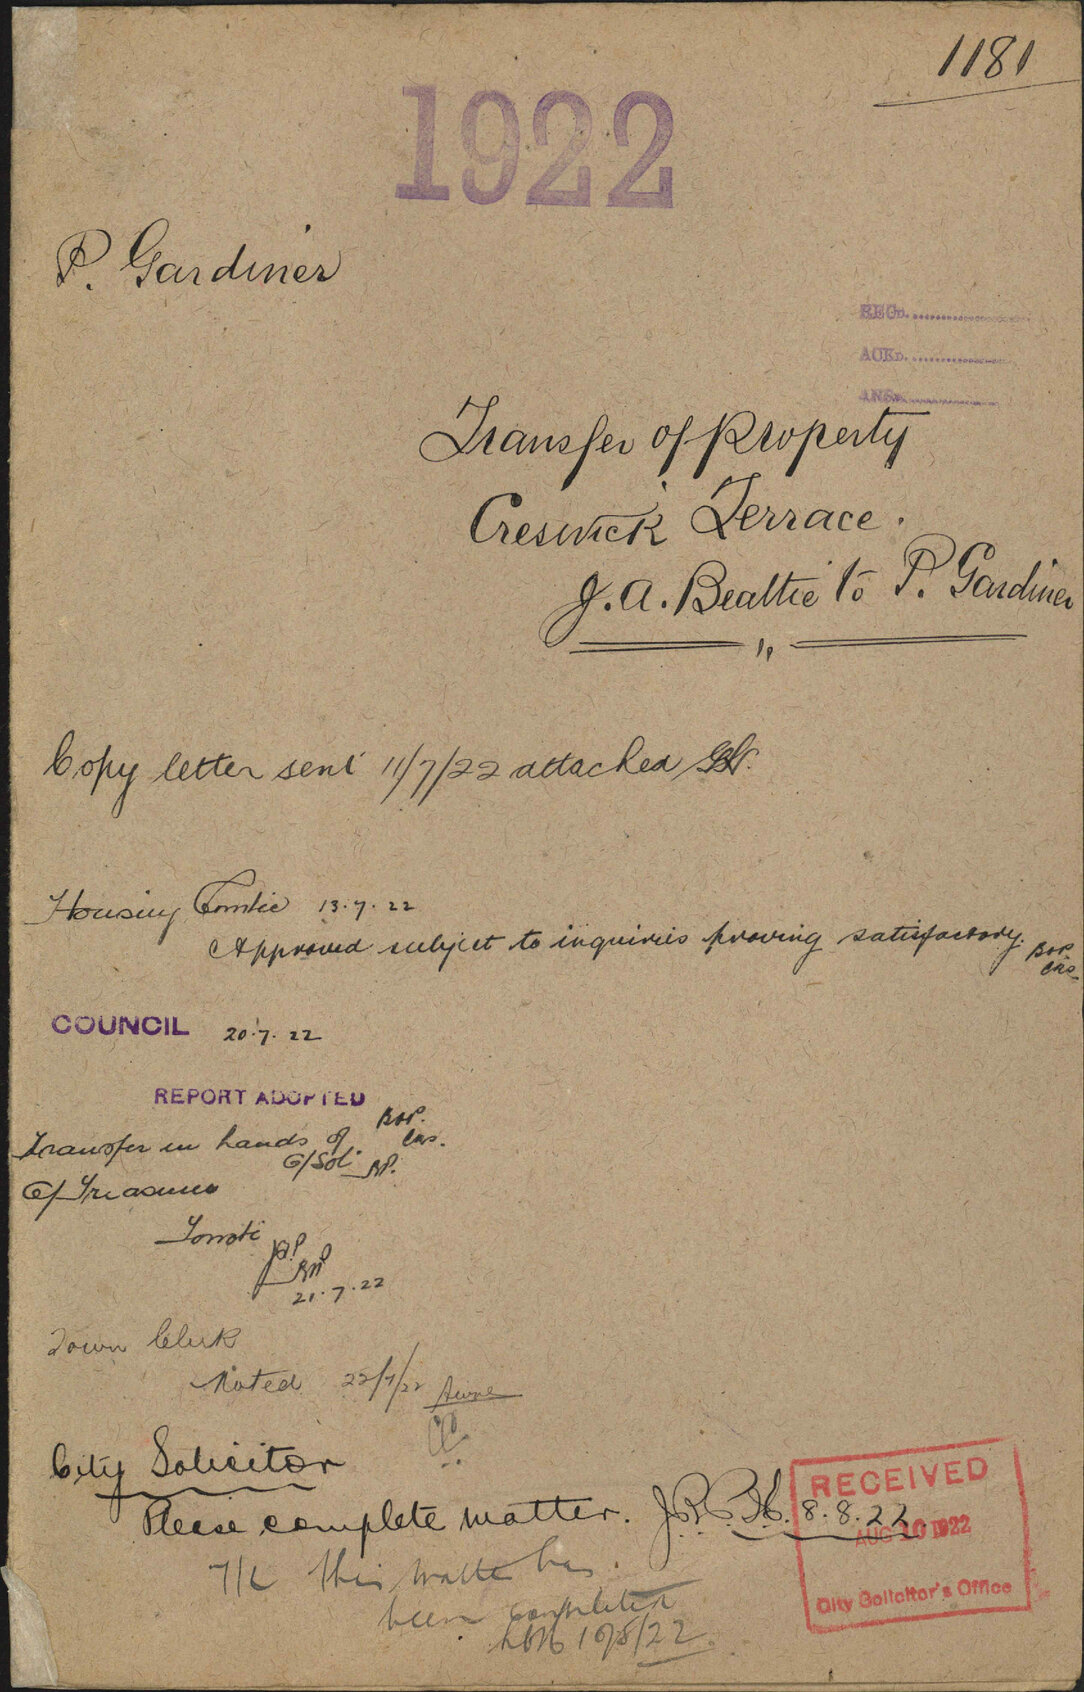 1181
1922
P. Gardiner
RECD.
ACKD.
ANSD.
Transfer of Property
Creswick Terrace.
J. A. Beattie to P. Gardiner
Copy letter sent 11/7/22 attached
Housing Comtee 13.7.22
Approved subject to inquiries proving satisfactory.
COUNCIL 20.7.22
REPORT ADOPTED
Transfer in hands of
C/Sol
C/Treasurer
21.7.22
Town Clerk
Noted 22/7/22
City Solicitor
Please complete matter. 8.8.22
RECEIVED
AUG 10 1922
City Solicitor's Office
T/C This matter has
been completed
10/8/22